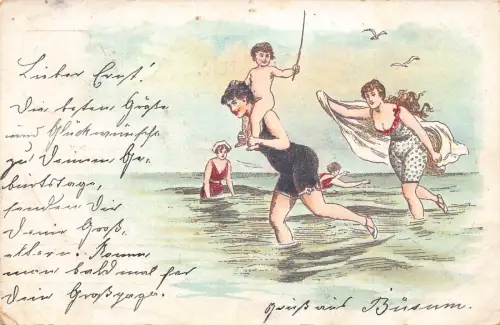 Lieber Ernst!
Die besten Grüße
und Glückwünsche
zu Deinem Ge-
burtstage,
senden Dir
Deine Groß-
eltern. Komm
man bald mal her
Dein Großpapa.
Gruß aus Büsum.